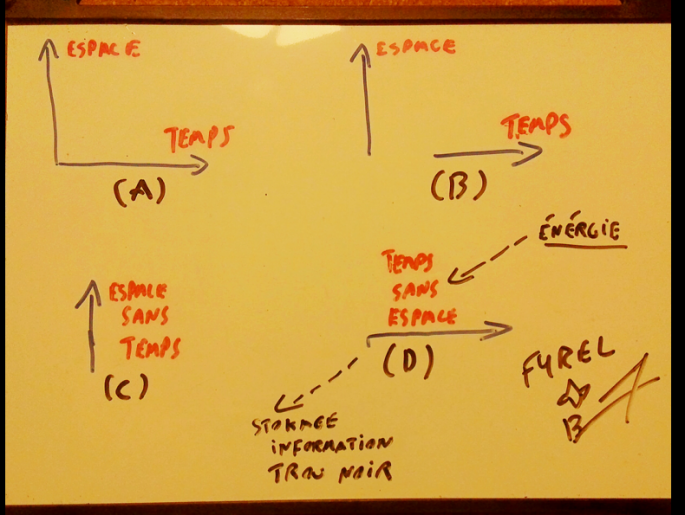 ESPACE
TEMPS
(A)
ESPACE
TEMPS
(B)
ESPACE
SANS
TEMPS
(C)
ÉNÉRGIE
TEMPS
SANS
ESPACE
(D)
STOKAGE
INFORMATION
TROU NOIR
FYREL
B